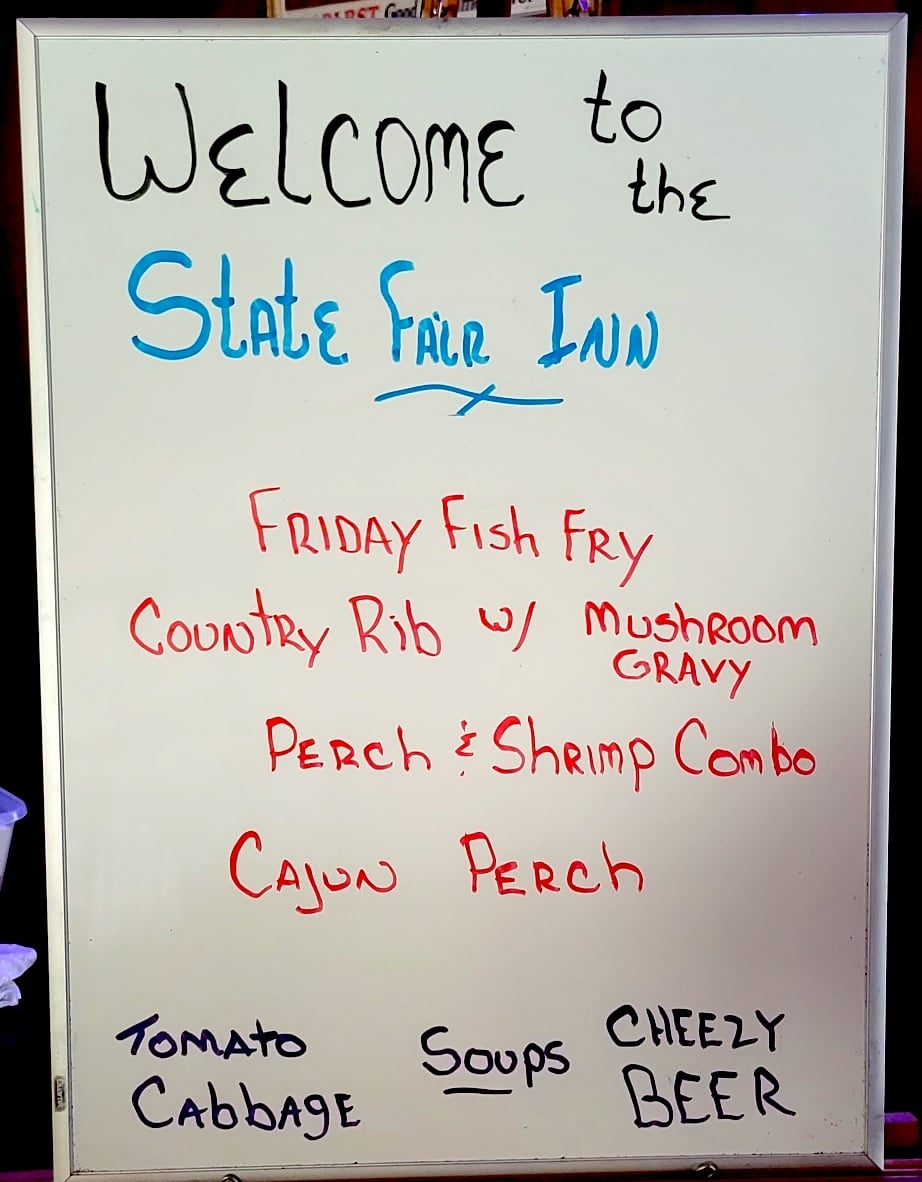 PABST Good
WELCOME to
the
State Fair Inn
FRIDAY Fish FRY
Country Rib w/ Mushroom
GRAVY
Perch & Shrimp Combo
Cajun Perch
Tomato Soups CHEEZY
Cabbage BEER